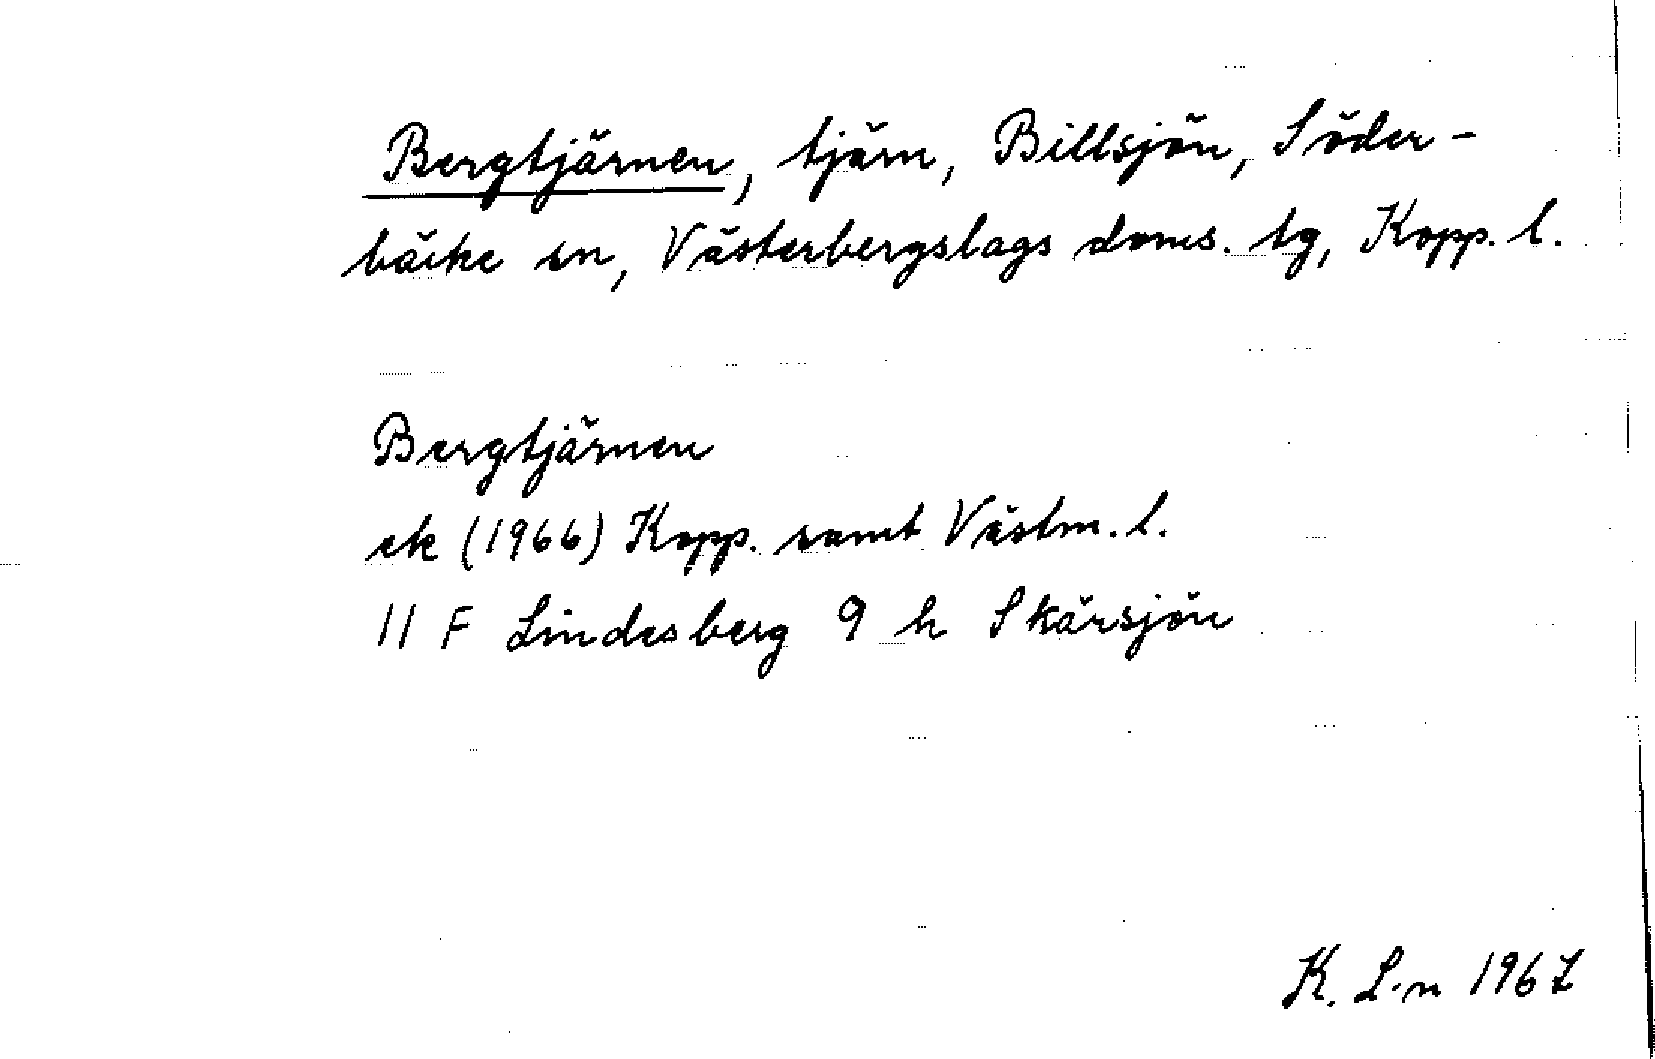 Bergtjärnen, tjärn, Billsjön, Söder-
bäcke sn, Västerbergslags doms. tg, Kopp. l.
Bergtjärnen
ek (1966) Kopp. samt Västm. l.
11 F Lindesberg 9 h Skärsjön
K. L-n 1967